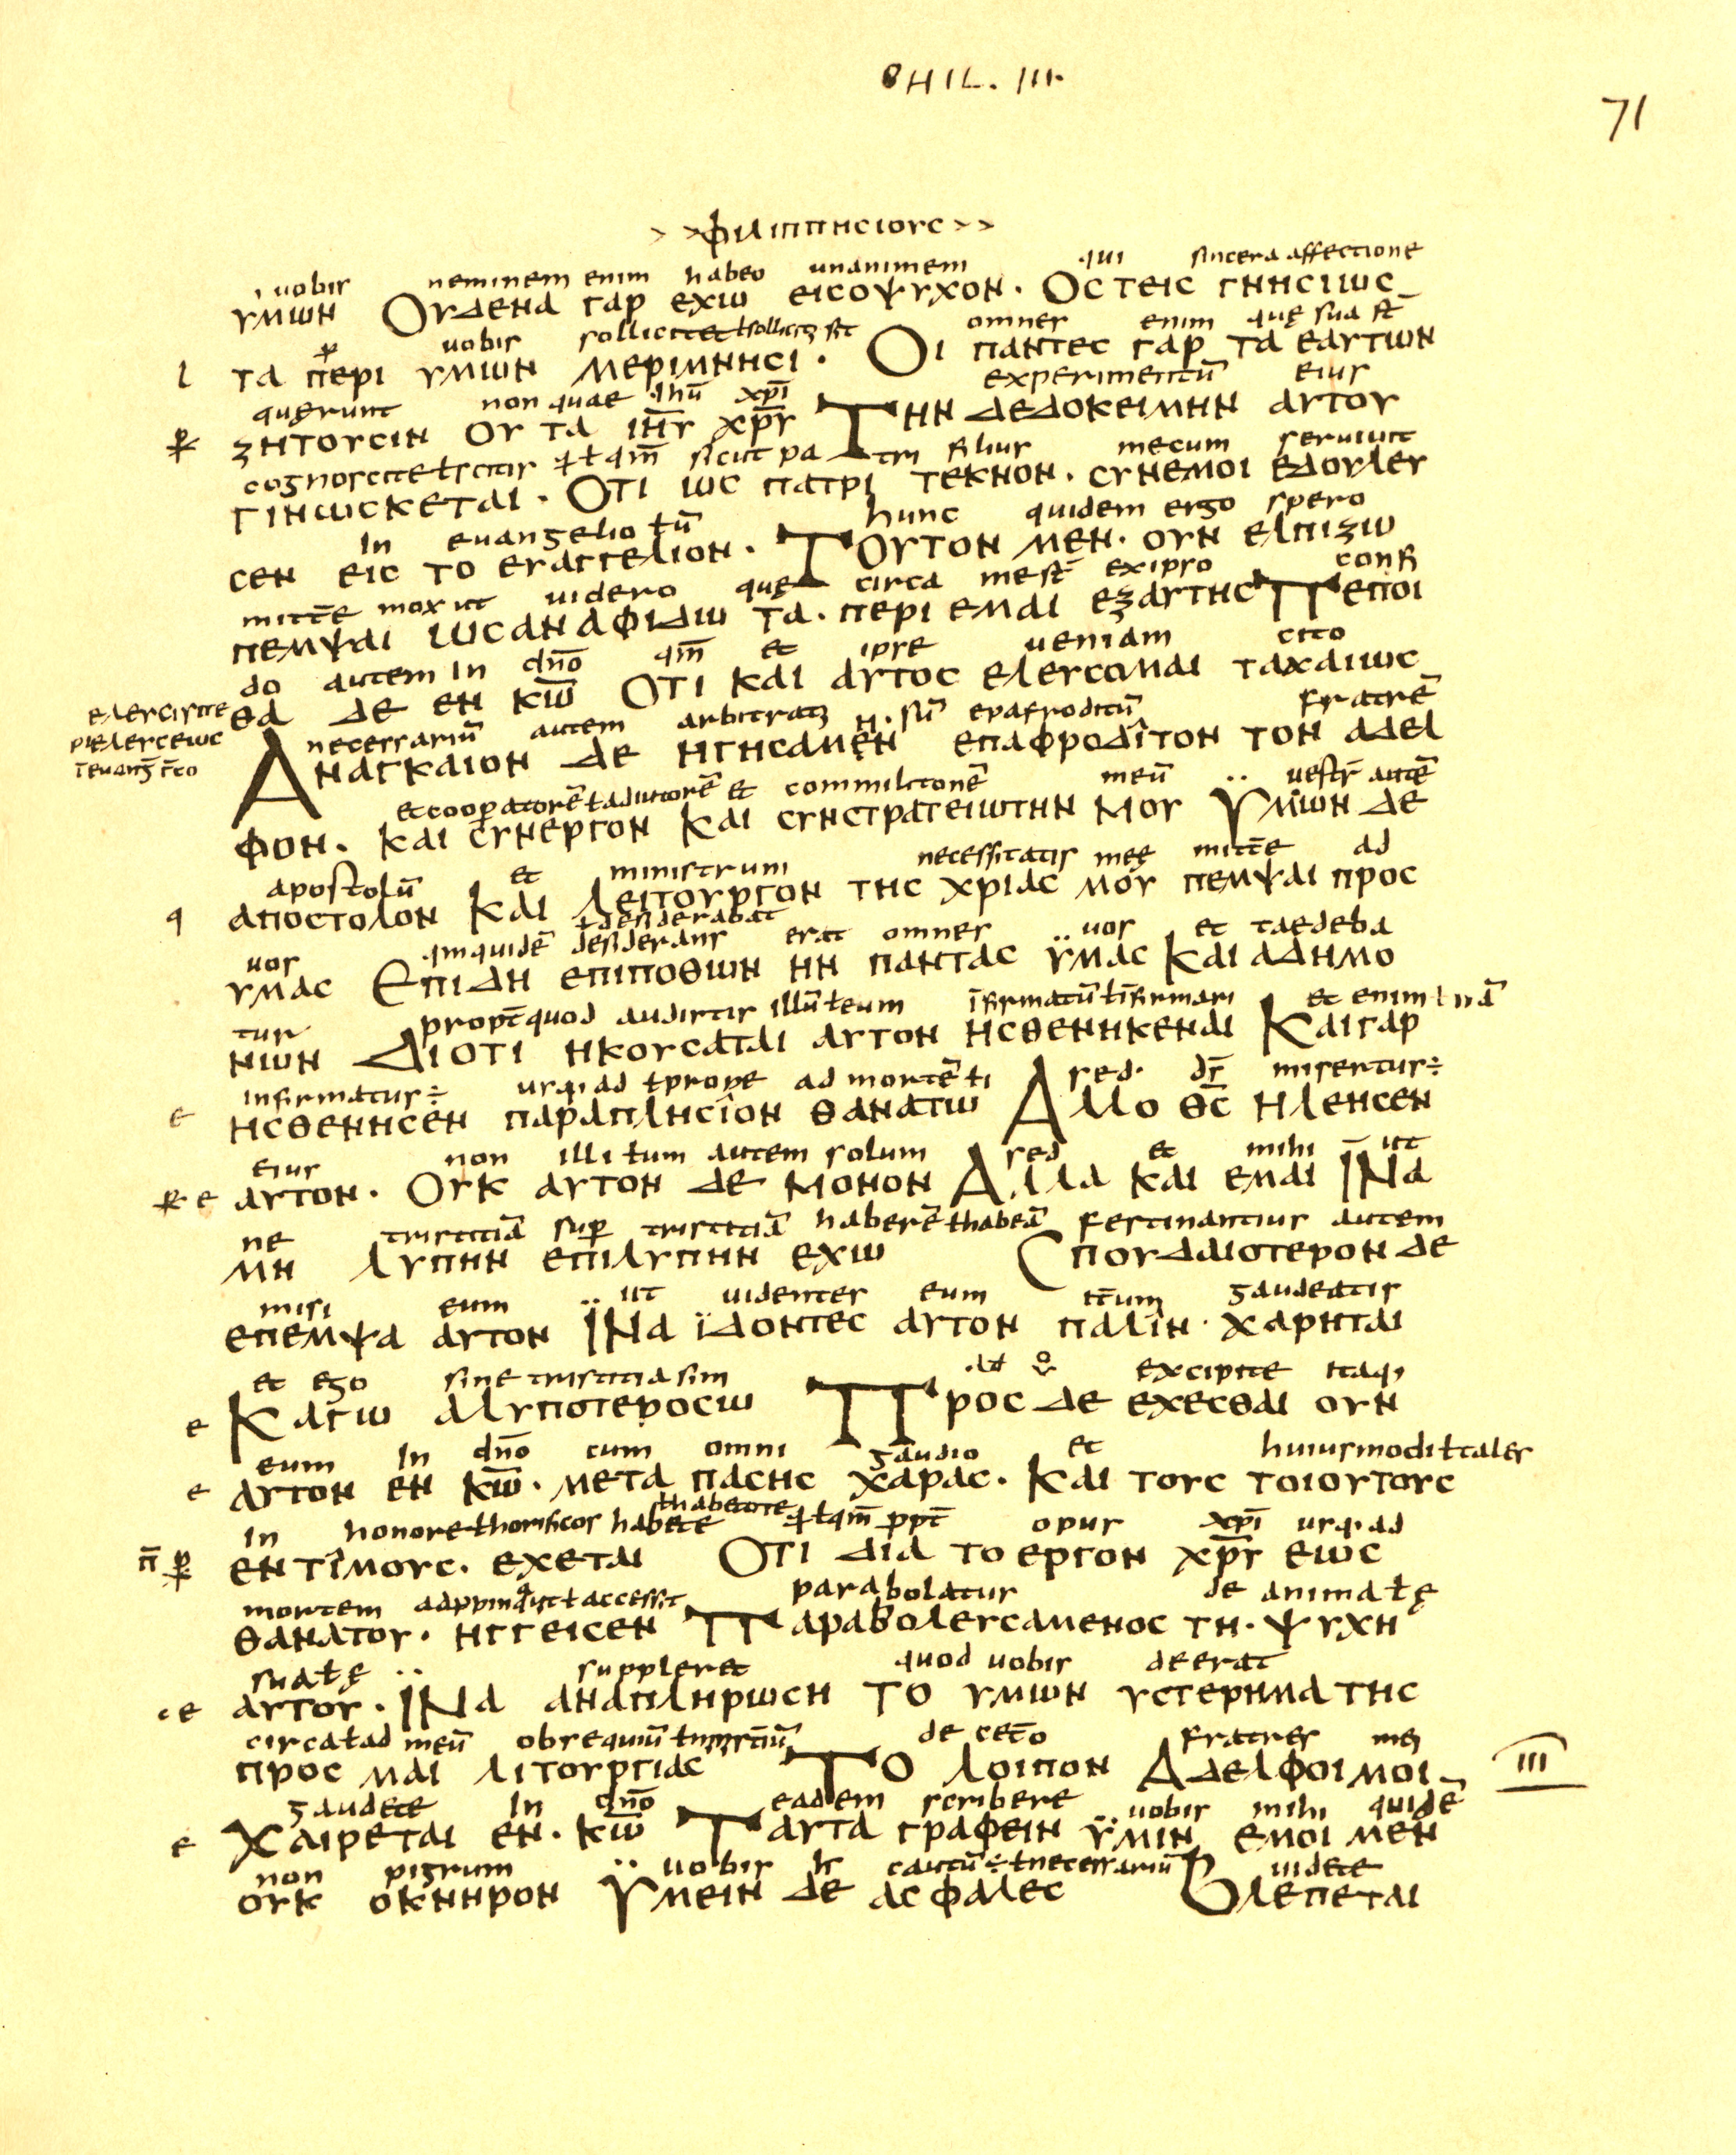 PHIL. III.
71
> > φιλιππηcιουc > >
uobis neminem enim habeo unanimem qui sincera affectione
υμων Ουδενα γαρ εχω ειcοψυχον. Οc τειc γνηcιωc
uobis sollicite omnes enim quę sua st̄
l τα περι υμων μεριμνηcι. Οι παντεc γαρ τα εαυτων
querunt non quae ihū xp̄i experimentū eius
ζητουcιν ου τα ιη̄υ χρ̄υ Την δεδοκειμην αυτου
sicut pa tri filius mecum seruiuit
γινωcκεται. Οτι ωc πατρι τεκνον. cυνεμοι εδουλευ
In euangelio hunc quidem ergo spero
cεν ειc το ευαγγελιον. Τουτον μεν. ουν ελπιζω
mitt̄e mox ut uidero quę circa me st̄ exipro confi
πεμψαι ωcαναφιδω τα. περι εμαι εξαυτηc Πεποι
do autem In dn̄o qm̄ et ipse ueniam cito
θα δε εν κω̄ Οτι και αυτοc ελευcομαι ταχαιωc
necessariū autem arbitratus sū epafroditū fratrē
Αναγκαιον δε ηγηcαμεν επαφροδιτον τον αδελ
et cooperatorē ł adiutorē et commilitonē meū uestrū autē
φον. και cυνεργον και cυνcτρατειωτην μου Υμων δε
apostolū et ministrum necessitatis meę mitt̄e ad
αποcτολον και λειτουργον τηc χριαc μου πεμψαι προc
ł desiderabat
uos qm quidē desiderans erat omnes uos et taedeba
υμαc Επιδη επιποθων ην πανταc υμαc και αδημο
tur propt̄ quod audistis illū ł eum īfirmatū ł īfirmari et enim
νων Διοτι ηκουcαται αυτον ηcθενηκεναι Και γαρ
infirmatus ÷ usq; ad ł prope ad mortē sed ds̄ misertus ÷
e ηcθενηcεν παραπληcιον θανατω Αλλο θc̄ ηλεηcεν
eius non illi ł um autem solum sed et mihi ut
e αυτον. Ουκ αυτον δε μονον Αλλα και εμαι ΙΝα
ne tristitiā sup̄ tristitiā haberē ł habeā festinantius autem
μη λυπην επιλυπην εχω Cπουδαιοτερον δε
misi eum ut uidentes eum it̄um gaudeatis
επεμψα αυτον ΙΝα ϊδοντεc αυτον παλιν. χαρηται
et ego sine tristitia sim excipite itaq;
e Καγω αλυποτεροcω Προc δε εχεcθαι ουν
eum In dn̄o cum omni gaudio et huiusmodi ł tales
e αυτον εν κω̄. μετα παcηc χαραc. και τουc τοιουτουc
ł habetote
In honore ł honificos habete ppt̄ opus xp̄i usq; ad
εντιμουc. εχεται Οτι δια το εργον χρ̄υ εωc
mortem parabolatus de anima ł ę
θανατου. ηγγειcεν Παραβολευcαμενοc τη. ψυχη
sua ł ę suppleret quod uobis deerat
e αυτου. ΙΝα αναπληρωcη το υμων υcτερημα τηc
circa ł ad meū obsequiū de cet̄o fratres mei
προc μαι λιτουργιαc Το λοιπον Αδελφοι μοι III
gaudete In dn̄o eadem scribere uobis mihi quidē
e χαιρεται εν. κω̄ Ταυτα γραφειν ϋμιν εμοι μεν
non pigrum uobis cautū ÷ ł necessariū uidete
ουκ οκνηρον Υμειν δε αcφαλεc Βλεπεται